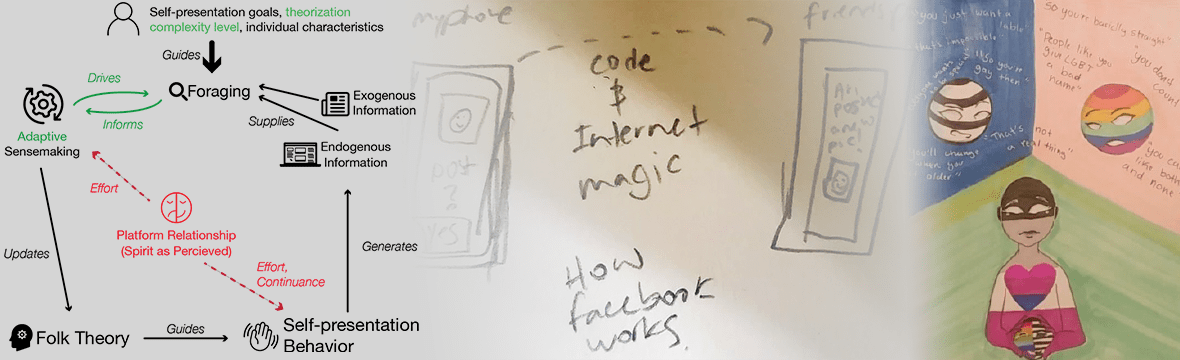 Self-presentation goals, theorization
complexity level, individual characteristics
Guides
Drives
Foraging
Informs
Exogenous
Information
Supplies
Adaptive
Sensemaking
Endogenous
Information
Effort
Platform Relationship
(Spirit as Percieved)
Updates
Generates
Effort,
Continuance
Folk Theory
Guides
Self-presentation
Behavior
my phone
friends
code
$
Internet
magic
post
?
YES
How
facebook
works.
"you just want a
label"
that's impossible
so you're
gay then"
"That's not
a real thing"
you'll change
when you
older"
so you're basically straight"
"People like you
give LGBT
a bad
name"
"you don't
count"
"you can't
like both
and none